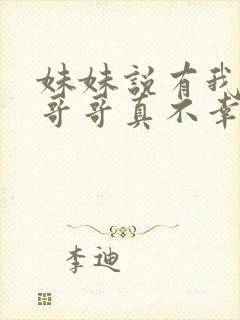 妹妹說有我
哥哥真不幸
李迪